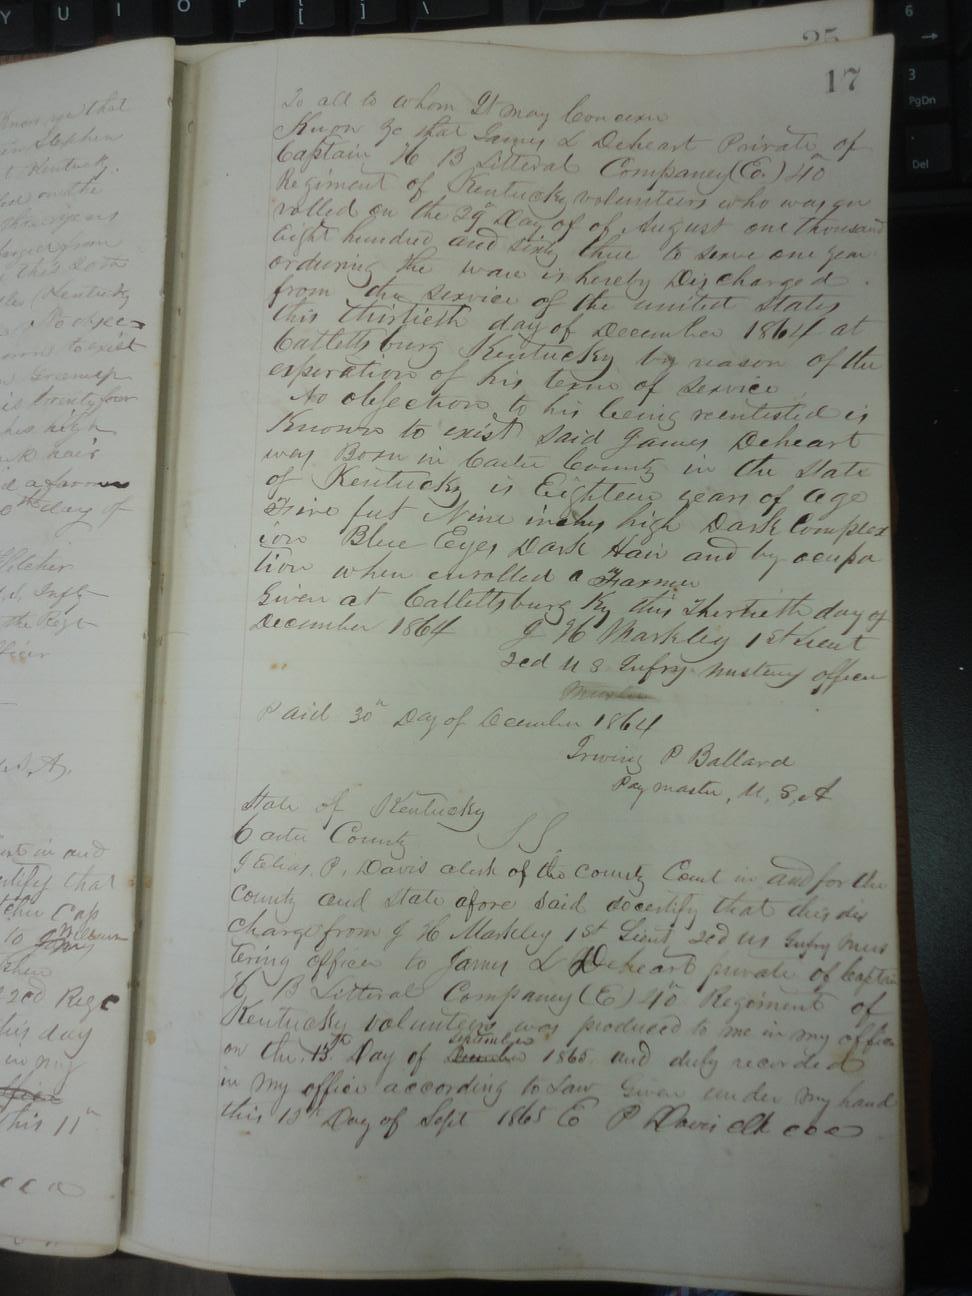 25
17
To all to whom It may Concern
Know ye that James L Deheart Private of
Captain H B Litteral Company (E.) 40th
Regiment of Kentucky volunteers who was en
rolled on the 29th Day of of August one thousand
Eight hundred and sixty three to serve one year
orduring the ware is hereby Discharged
from the service of the united States
this thirtieth day of December 1864 at
Catlettsburg Kentucky by reason of the
experation of his term of service
No objection to his being reentisted is
Known to exist Said James Deheart
was Born in Carter County in the State
of Kentucky is Eighteen years of age
Five feet Nine inches high Dark Complex
ion Blue Eyes Dark Hair and by ocupa
tion when enrolled a Farmer
Given at Catlettsburg Ky this Thertieth day of
December 1864 J H Markley 1st Lieut
2ed U S Infry mustering officer
Paid 30th Day of December 1864
Irwing P Ballard
Pay master, U, S, A
State of Kentucky
Carter County SS
I Elias P. Davis clerk of the County Court in and for the
County and State afore said docertify that this dis
charge from J H Markley 1st Lieut 2ed US Infry Mus
tering officer to James L Deheart private of Captain
H B Litteral Company (E) 40th Regiment of
Kentucky volunteers was produced to me in my office
on the 13th Day of September 1865 and duly recorded
in my office according to Law Given under my hand
this 13th Day of Sept 1865 E P Davis clk c c c
Know ye that
Stephen
Kentucky
on the
years
from
this
Kentucky
No objec
to exist
Greenup
is twenty four
high
hair
a farmer
day of
Pilcher
U.S. Infty
the Regt
officer
U.S, A,
in and
certify that
Cap
to
22d Regt
this day
in my
this 11th
c c c